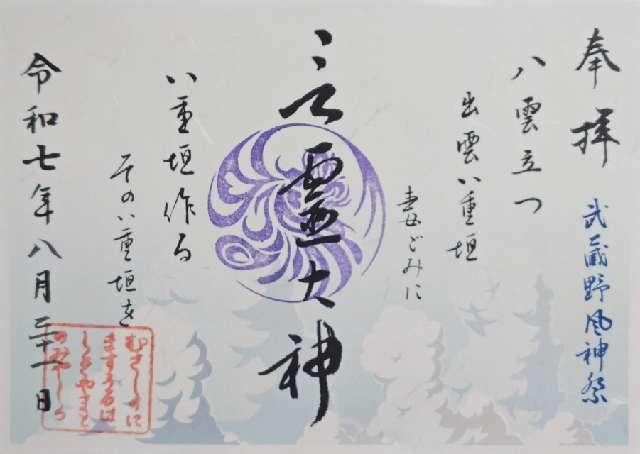 奉拝
武蔵野風神祭
八雲立つ
出雲八重垣
妻ごみに
言霊大神
八重垣作る
その八重垣を
令和七年八月二十一日
むさしのに